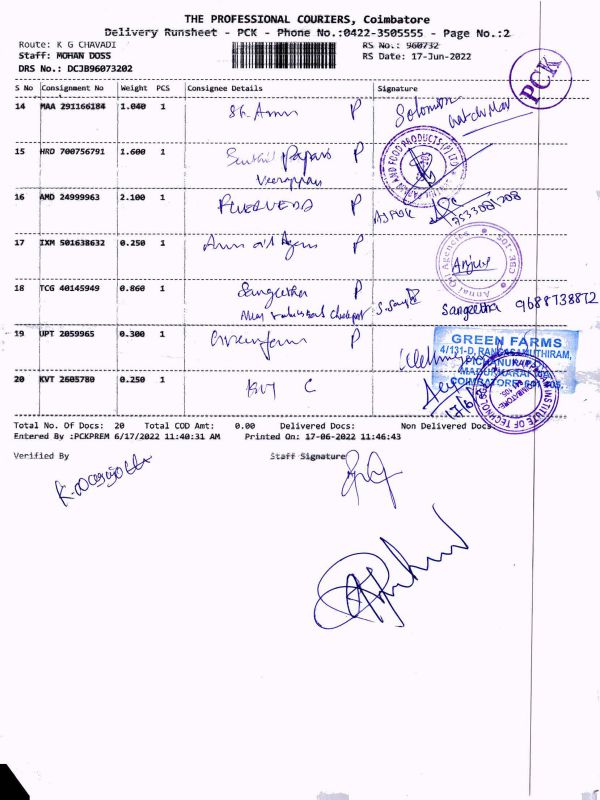 THE PROFESSIONAL COURIERS, Coimbatore
Delivery Runsheet - PCK - Phone No.:0422-3505555 - Page No.:2
Route: K G CHAVADI
RS No.: 960732
Staff: MOHAN DOSS
RS Date: 17-Jun-2022
DRS No.: DCJB96073202
PCK
S No Consignment No Weight PCS Consignee Details Signature
14 MAA 291166184 1.040 1 P Solomon
watchman
15 HRD 700756791 1.600 1 Senthil Papers P
Veerappan
AND FOOD PRODUCTS (P) LTD
16 AMD 24999963 2.100 1 P
17 IXM 501638632 0.250 1 P
Annai Oil Agencies
18 TCG 40145949 0.860 1 Sangeetha P
Sangeetha 9688738872
19 UPT 2059965 0.300 1 P
GREEN FARMS
4/131-D, RANGASAMUTHIRAM,
PICHANUR
MADUKKARAI
COIMBATORE
20 KVT 2605780 0.250 1 KVT C
INSTITUTE OF TECHNOLOGY
COIMBATORE
Total No. Of Docs: 20 Total COD Amt: 0.00 Delivered Docs: Non Delivered Docs:
Entered By :PCKPREM 6/17/2022 11:40:31 AM Printed On: 17-06-2022 11:46:43
Verified By Staff Signature